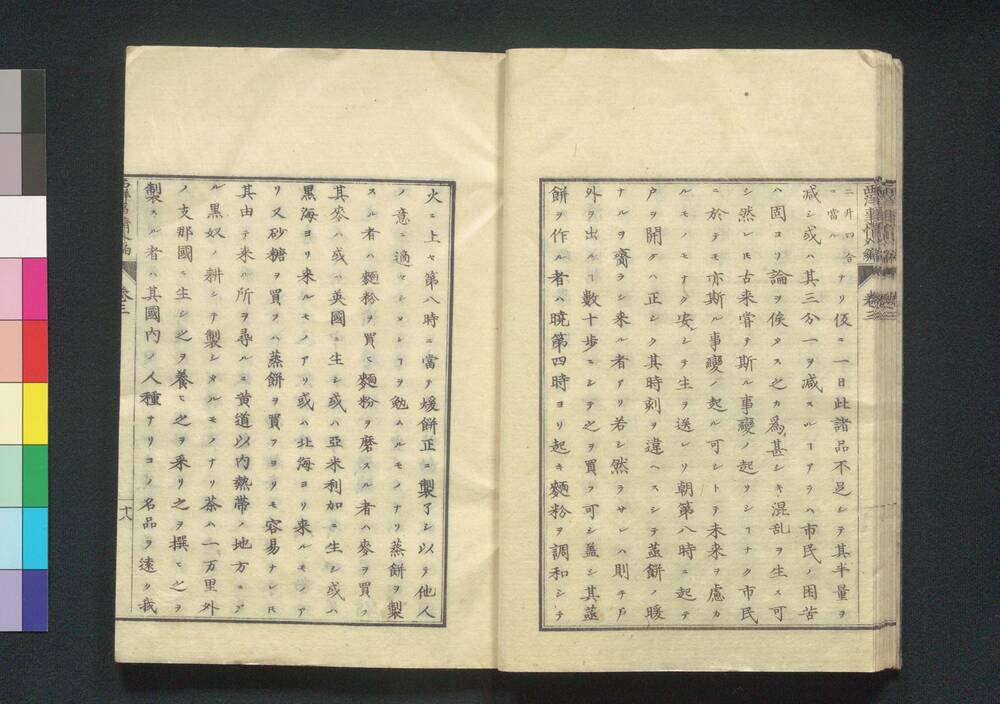 二升口合
ニ當ル
ナリ仮ニ一日此諸品不足シテ其半量ヲ
減シ或ハ其三分一ヲ減スルヿアラハ市民ノ困苦
ハ固ヨリ論ヲ俟タス之カ爲甚シキ混乱ヲ生ス可
シ然レ𪜈古来嘗テ斯ル事變ノ起リシヿナク市民
ニ於テモ亦斯ル事變ノ起ル可シトテ未来ヲ慮カ
ルモノモナク安シテ生ヲ送レリ朝第八時ニ起テ
戸ヲ開クハ正シク其時刻ヲ違ヘスシテ蒸餅ノ暖
ナルヲ齎ラシ来ル者アリ若シ然ラサレハ則チ戸
外ヲ出ルヿ数十歩ニシテ之ヲ買フ可シ蓋シ其蒸
餅ヲ作ル者ハ曉第四時ヨリ起キ麵粉ヲ調和シテ
卷三
火ニ上セ第八時ニ當テ煖餅正ニ製了シ以テ他人
ノ意ニ適セシメンヿヲ勉ムルモノナリ蒸餅ヲ製
スル者ハ麵粉ヲ買ヒ麵粉ヲ磨スル者ハ麥ヲ買フ
其麥ハ或ハ英國ニ生シ或ハ亞米利加ニ生シ或ハ
黒海ヨリ来ルモノアリ或ハ北海ヨリ来ルモノア
リ又砂糖ヲ買フハ蒸餅ヲ買フヨリモ容易ナレ𪜈
其由テ来ル所ヲ尋ルニ黄道以内熱帯ノ地方ニア
ル黒奴ノ耕シテ製シタルモノナリ茶ハ一万里外
ノ支那國ニ生シ之ヲ養ヒ之ヲ采リ之ヲ撰ヒ之ヲ
製スル者ハ其國内ノ人種ナリコノ名品ヲ遠ク我
卷三
十八